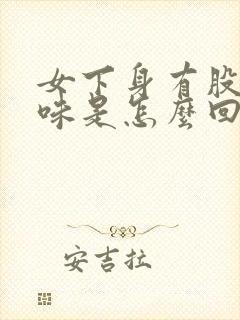 女下身有股
味是怎麼回
安吉拉